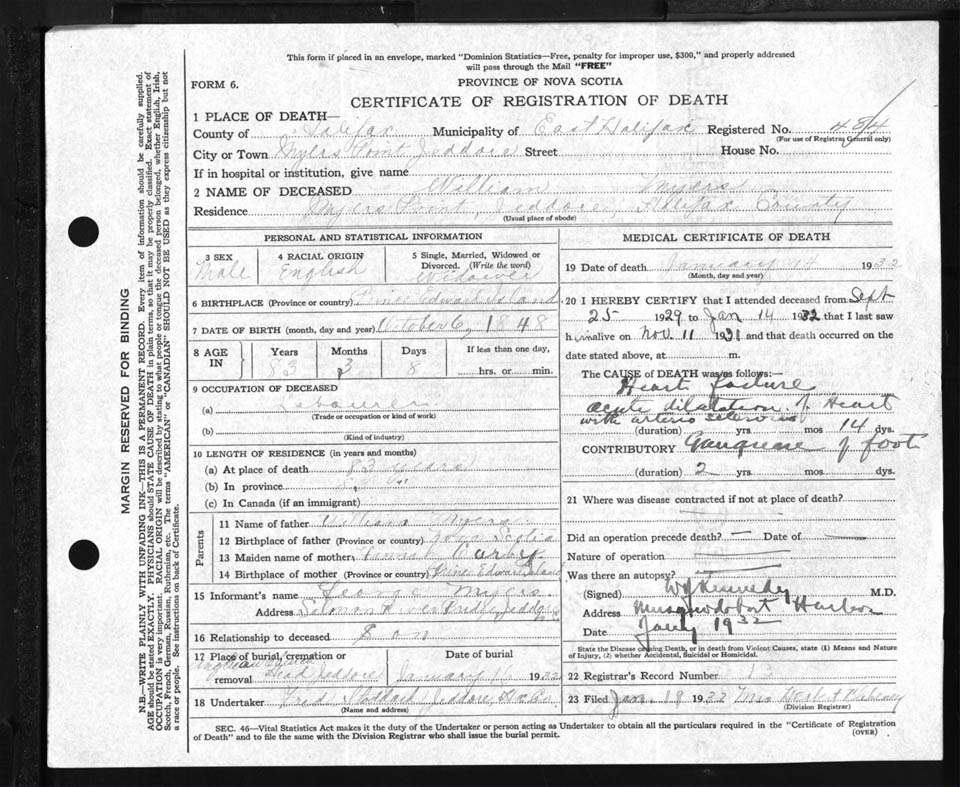 This form if placed in an envelope, marked "Dominion Statistics—Free, penalty for improper use, $300," and properly addressed
will pass through the Mail "FREE"
FORM 6.
PROVINCE OF NOVA SCOTIA
CERTIFICATE OF REGISTRATION OF DEATH
1 PLACE OF DEATH—
County of Halifax Municipality of East Halifax Registered No. 484
(For use of Registrar General only)
City or Town Myers Point Jeddore Street House No.
If in hospital or institution, give name
2 NAME OF DECEASED William Myers
Residence Myers Point, Jeddore, Halifax County
(Usual place of abode)
PERSONAL AND STATISTICAL INFORMATION
3 SEX Male
4 RACIAL ORIGIN English
5 Single, Married, Widowed or Divorced. (Write the word) Widower
6 BIRTHPLACE (Province or country) Prince Edward Island
7 DATE OF BIRTH (month, day and year) October 6, 1848
8 AGE IN Years 83 Months 3 Days 8 If less than one day, hrs. or min.
9 OCCUPATION OF DECEASED
(a) Labourer
(Trade or occupation or kind of work)
(b)
(Kind of industry)
10 LENGTH OF RESIDENCE (in years and months)
(a) At place of death 83 years
(b) In province
(c) In Canada (if an immigrant)
Parents
11 Name of father William Myers
12 Birthplace of father (Province or country) Nova Scotia
13 Maiden name of mother
14 Birthplace of mother (Province or country) Prince Edward Island
15 Informant's name George Myers
Address Salmon River Bridge, Jeddore
16 Relationship to deceased Son
17 Place of burial, cremation or removal Head Jeddore
Date of burial January 1932
18 Undertaker Fred Stoddard Jeddore
(Name and address)
MEDICAL CERTIFICATE OF DEATH
19 Date of death January 14 1932
(Month, day and year)
20 I HEREBY CERTIFY that I attended deceased from Sept
25 1929 to Jan 14 1932 that I last saw
him alive on Nov 11 1931 and that death occurred on the
date stated above, at m.
The CAUSE of DEATH was as follows:—
Heart failure
acute dilatation of Heart
with arterio sclerosis
(duration) yrs mos 14 dys.
CONTRIBUTORY Gangrene of foot
(duration) 2 yrs mos dys.
21 Where was disease contracted if not at place of death?
Did an operation precede death? Date of
Nature of operation
Was there an autopsy?
(Signed) W J Kennedy M.D.
Address Musquodoboit Harbor
Date Jany 1932
State the Disease causing Death, or in death from Violent Causes, state (1) Means and Nature
of Injury, (2) whether Accidental, Suicidal or Homicidal.
22 Registrar's Record Number
23 Filed Jan. 18 1932
(Division Registrar)
SEC. 46—Vital Statistics Act makes it the duty of the Undertaker or person acting as Undertaker to obtain all the particulars required in the "Certificate of Registration
of Death" and to file the same with the Division Registrar who shall issue the burial permit.
(OVER)
MARGIN RESERVED FOR BINDING
N.B.—WRITE PLAINLY WITH UNFADING INK—THIS IS A PERMANENT RECORD. Every item of information should be carefully supplied.
AGE should be stated EXACTLY. PHYSICIANS should STATE CAUSE OF DEATH in plain terms, so that it may be properly classified. Exact statement of
OCCUPATION is very important. RACIAL ORIGIN will be described by stating to what people or tongue the deceased person belonged, whether English, Irish,
Scotch, French, German, Russian, Ruthenian, etc. The terms "AMERICAN" or "CANADIAN" SHOULD NOT BE USED as they express citizenship but not
a race or people. See instructions on back of Certificate.